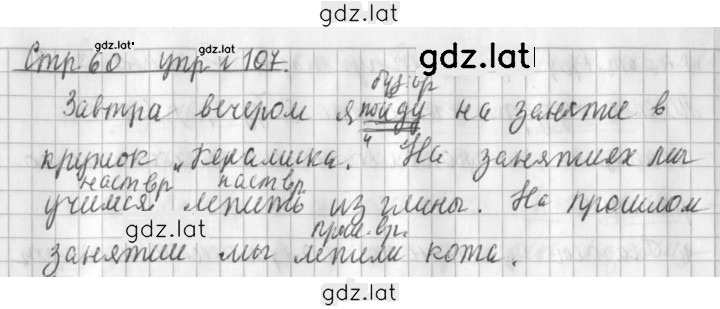 gdz.lat
gdz.lat gdz.lat gdz.lat
Стр 60 упр. 107.
буд. вр
Завтра вечером я пойду на занятие в
кружок "Керамика. На занятиях мы
наст вр наст вр
учимся лепить из глины. На прошлом
gdz.lat прош. вр. gdz.lat
занятии мы лепили кота.
gdz.lat